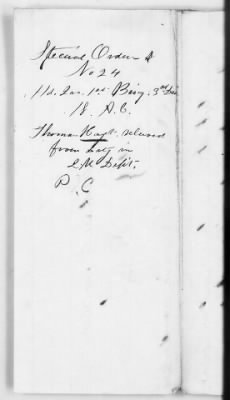 Special Orders
No 24
Hd. Qrs. 1st Brig. 3rd Div
18. A.C.
Thomas relieved
from duty in
Q.M. Dept.
P. C